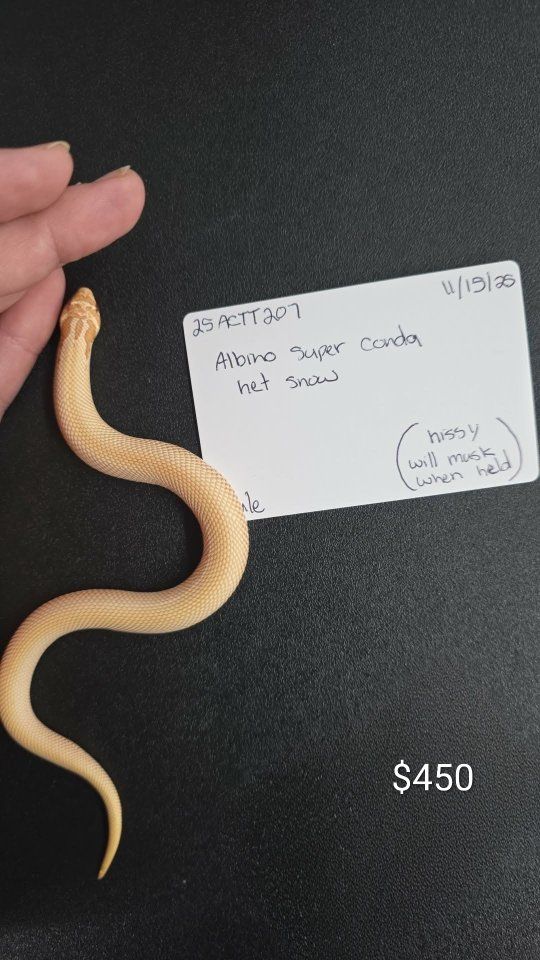 25ACTT207
11/19/25
Albino Super Conda
het snow
(hissy
will musk
when held)
le
$450